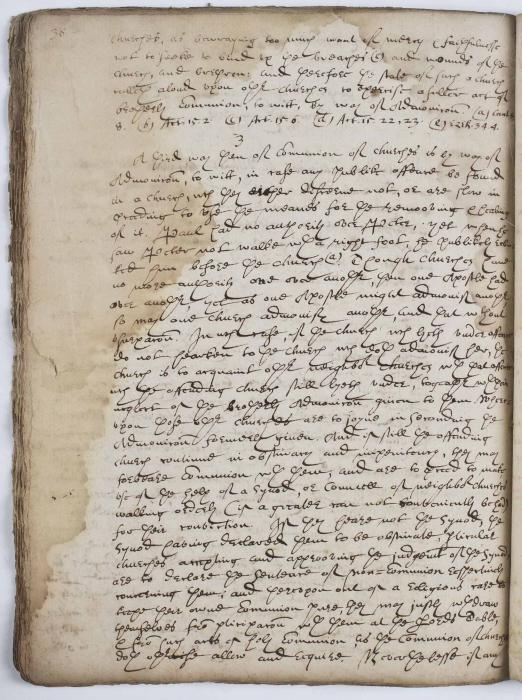 38
churches, as bewraying too much want of mercy & faithfulnesse
not to seeke to bind up ye breaches (e) and wounds of ye
church, and brethren: and therefore ye state of such a church
calleth aloud upon other churches to exercise a fuller act of
brotherly Communion, to witt, by way of Admonition.
8. (b) Act: 15 2 (c) Act. 15 6. (d) Act: 15 22, 23, (e) Ezek: 34 4.
3
A third way then of Communion of churches is by way of
Admonition, to witt, in case any Publike offence be found
in a church, wch they either discerne not, or are slow in
proceeding to use the meanes for the removing & healing
of it. Paul had no authority over Peter, yet when he
saw Peter not walke wth a right foot, he Publikely rebu
ked him before the church (a) Though Churches have
no more authority one over another, then one Apostle had
over another yet as one Apostle might admonish another
so may one church admonish another and yet without
usurpation. In wch case, if the Church wch lyeth under offence
do not hearken to the church wch doth admonish her, the
church is to acquaint other neighbor churches wth yt offence
wch the offending church still lyeth under, together with
neglect of the brotherly Admonition given to them where
upon those other churches are to joyne in seconding the
Admonition formerly given. And if still the offending
church continue in obstinacy and impenitency, they may
forbeare Communion wth them, and are to proceed to make
use of the help of a Synod, or Councell of neighbor churches
walking orderly (if a greater can not conveniently be had)
for their conviction. If they heare not the Synod, the
Synod having declared them to be obstinate, pticular
churches accepting and approoving the judgmt of the Synod
are to declare the sentence of non-Communion respectively
concerning them: and therupon out of a Religious care to
keepe their owne Communion pure, they may justly wthdraw
themselves fro pticipation wth them at the Lords Table,
& fro such acts of holy Communion, as the Communion of churches
doth otherwise allow and require. Nevertheless if any